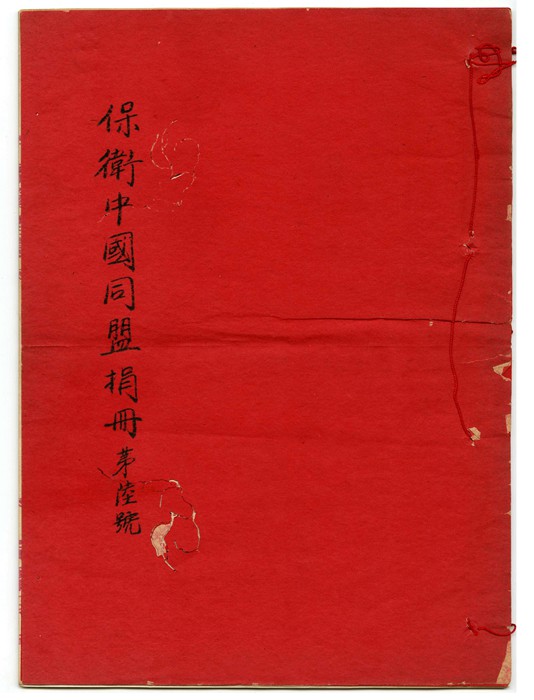 保衛中國同盟捐冊第陸號